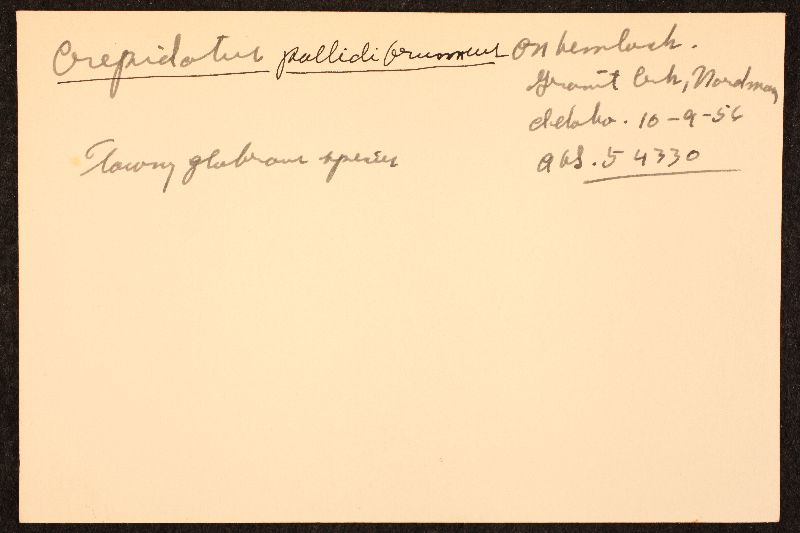 Crepidotus pallidibrunneus on hemlock.
Granit Crk, Nordman
Idaho. 10-9-56
AHS. 54330
Tawny glabrous species